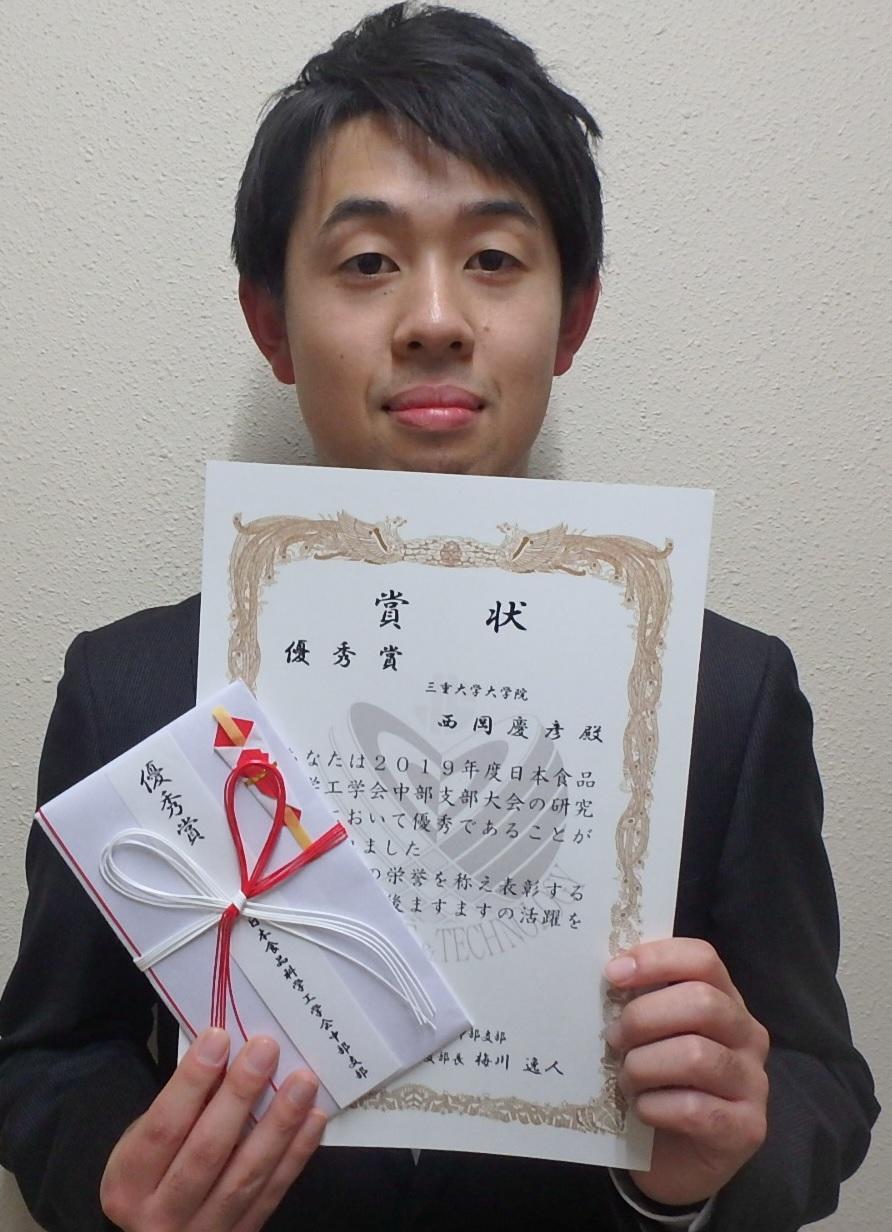 賞 状
優秀賞
三重大学大学院
西岡慶彦 殿
なたは2019年度日本食品
学工学会中部支部大会の研究
おいて優秀であることが
ました
の栄誉を称え表彰する
後ますますの活躍を
中部支部
支部長 梅川 逸人
TECHNOLOGY
優秀賞
日本食品科学工学会中部支部